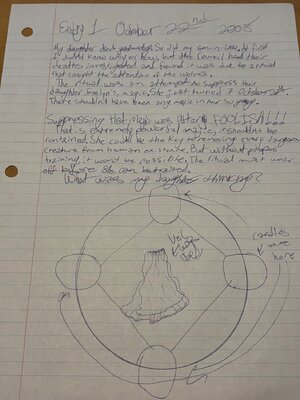 Entry 1 October 22nd 2008
My daughter died yesterday. So did my son in law. At first
I didn't know why or how, but the Council had their
deaths investigated and found it was due to a ritual
that caught the attention of the wolves.
The ritual was an attempt to suppress their
daughter, Evelyn's, magic. She just turned 7 October 20th.
There shouldn't have been any magic in her
Suppressing that magic was utterly FOOLISH!!!!
That is extremely powerful magic, it shouldn't be
contained. She could be the key to removing every dangerous
creature from human existence. But without proper
training, it won't be possible. The ritual must wear
off before she can be trained.
What was my daughter thinking?
candles
were
here